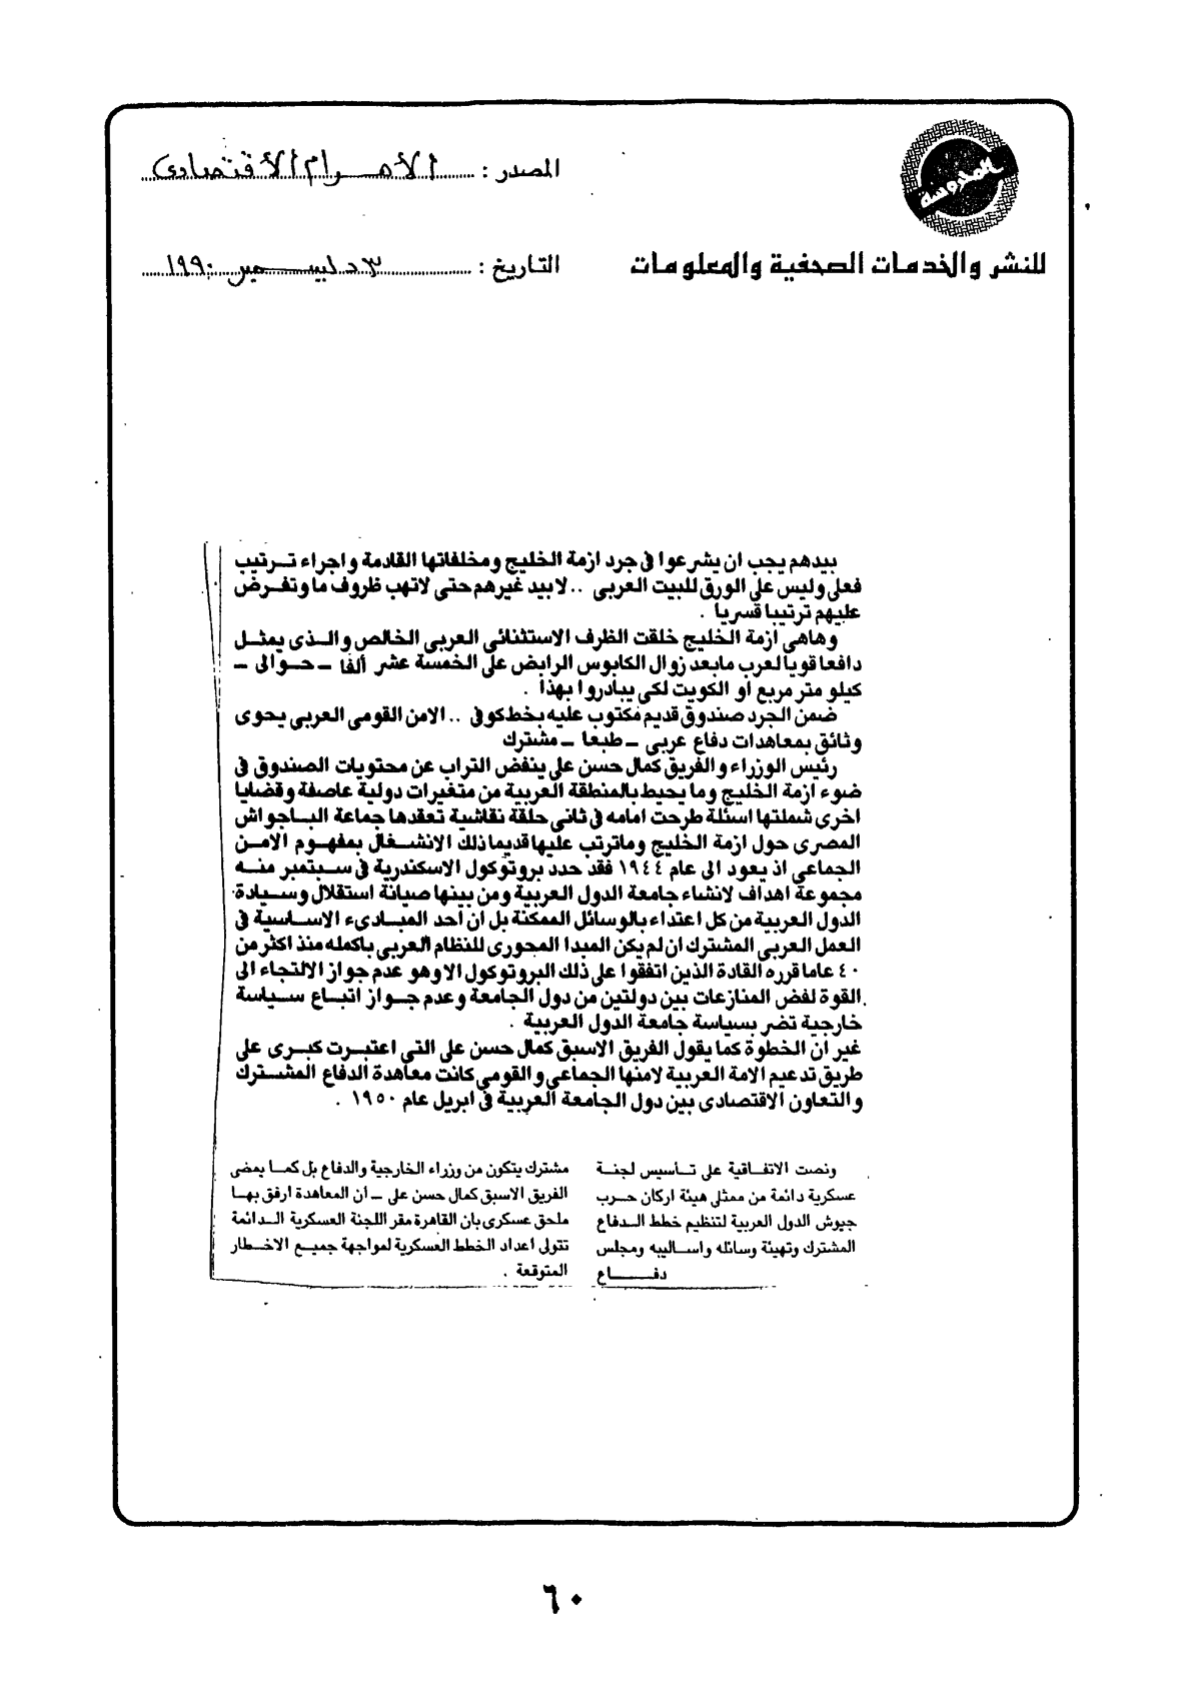 المحروسة
المصدر : الأهرام الاقتصادى
للنشر والخدمات الصحفية والمعلومات
التاريخ : ٣ ديسمبر ١٩٩٠
بيدهم يجب ان يشرعوا فى جرد ازمة الخليج ومخلفاتها القادمة واجراء ترتيب
فعلى وليس على الورق للبيت العربى .. لا بيد غيرهم حتى لاتهب ظروف ما وتفرض
عليهم ترتيبا قسريا .
وهاهى ازمة الخليج خلقت الظرف الاستثنائى العربى الخالص والذى يمثل
دافعا قويا لعرب مابعد زوال الكابوس الرابض على الخمسة عشر ألفا - حوالى -
كيلو متر مربع او الكويت لكى يبادروا بهذا .
ضمن الجرد صندوق قديم مكتوب عليه بخط كوفى .. الامن القومى العربى يحوى
وثائق بمعاهدات دفاع عربى - طبعا - مشترك
رئيس الوزراء والفريق كمال حسن على ينفض التراب عن محتويات الصندوق فى
ضوء ازمة الخليج وما يحيط بالمنطقة العربية من متغيرات دولية عاصفة وقضايا
اخرى شملتها اسئلة طرحت امامه فى ثانى حلقة نقاشية تعقدها جماعة الباجواش
المصرى حول ازمة الخليج وماترتب عليها قديما ذلك الانشغال بمفهوم الامن
الجماعى اذ يعود الى عام ١٩٤٤ فقد حدد بروتوكول الاسكندرية فى سبتمبر منه
مجموعة اهداف لانشاء جامعة الدول العربية ومن بينها صيانة استقلال وسيادة
الدول العربية من كل اعتداء بالوسائل الممكنة بل ان احد المبادىء الاساسية فى
العمل العربى المشترك ان لم يكن المبدا المحورى للنظام العربى باكمله منذ اكثر من
٤٠ عاما قرره القادة الذين اتفقوا على ذلك البروتوكول الا وهو عدم جواز الالتجاء الى
القوة لفض المنازعات بين دولتين من دول الجامعة وعدم جواز اتباع سياسة
خارجية تضر بسياسة جامعة الدول العربية .
غير ان الخطوة كما يقول الفريق الاسبق كمال حسن على التى اعتبرت كبرى على
طريق تدعيم الامة العربية لامنها الجماعى والقومى كانت معاهدة الدفاع المشترك
والتعاون الاقتصادى بين دول الجامعة العربية فى ابريل عام ١٩٥٠ .
ونصت الاتفاقية على تأسيس لجنة
عسكرية دائمة من ممثلى هيئة اركان حرب
جيوش الدول العربية لتنظيم خطط الدفاع
المشترك وتهيئة وسائله واساليبه ومجلس
دفاع
مشترك يتكون من وزراء الخارجية والدفاع بل كما يمضى
الفريق الاسبق كمال حسن على - ان المعاهدة ارفق بها
ملحق عسكرى بان القاهرة مقر اللجنة العسكرية الدائمة
تتولى اعداد الخطط العسكرية لمواجهة جميع الاخطار
المتوقعة .
٦٠